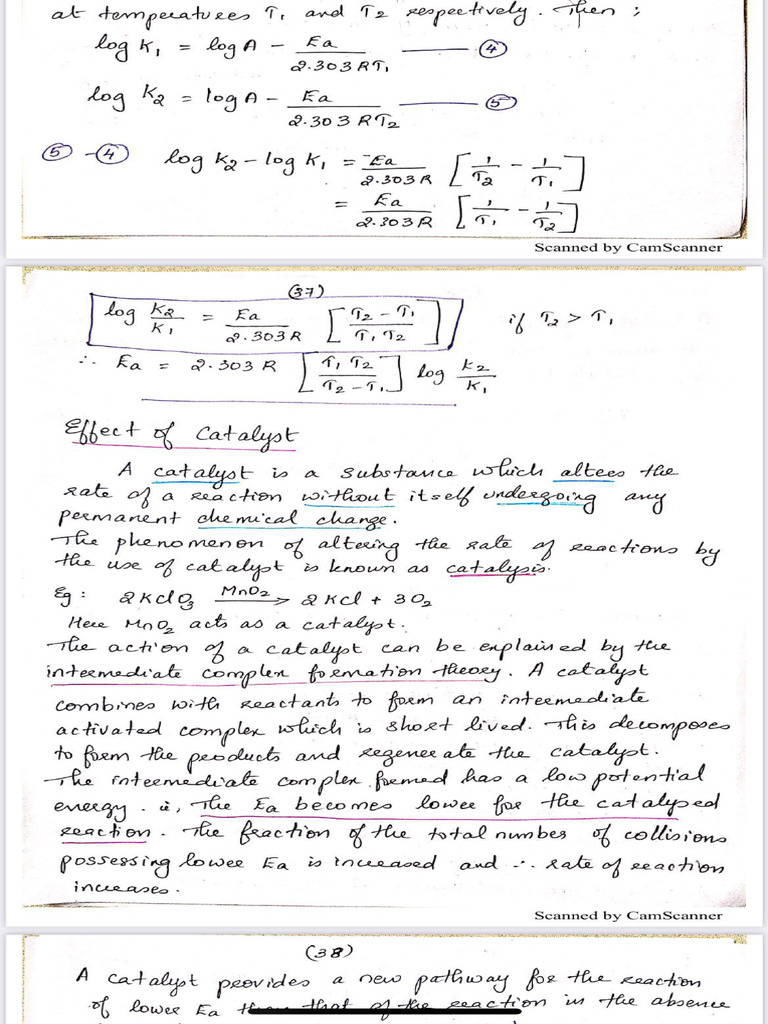 at temperatures T₁ and T₂ respectively. Then ;
log K₁ = log A - Ea / 2.303 RT₁ ——— ④
log K₂ = log A - Ea / 2.303 RT₂ ——— ⑤
⑤ - ④ log K₂ - log K₁ = -Ea / 2.303 R [ 1/T₂ - 1/T₁ ]
= Ea / 2.303 R [ 1/T₁ - 1/T₂ ]
Scanned by CamScanner
(37)
log K₂/K₁ = Ea / 2.303 R [ T₂ - T₁ / T₁ T₂ ] if T₂ > T₁
∴ Ea = 2.303 R [ T₁ T₂ / T₂ - T₁ ] log K₂/K₁
Effect of Catalyst
A catalyst is a substance which alters the
rate of a reaction without itself undergoing any
permanent chemical change.
The phenomenon of altering the rate of reactions by
the use of catalyst is known as catalysis.
Eg : 2KClO₃ —MnO₂→ 2KCl + 3O₂
Here MnO₂ acts as a catalyst.
The action of a catalyst can be explained by the
intermediate complex formation theory. A catalyst
combines with reactants to form an intermediate
activated complex which is short lived. This decomposes
to form the products and regenerate the catalyst.
The intermediate complex formed has a low potential
energy. ie, The Ea becomes lower for the catalysed
reaction. The fraction of the total number of collisions
possessing lower Ea is increased and ∴ rate of reaction
increases.
Scanned by CamScanner
(38)
A catalyst provides a new pathway for the reaction
of lower Ea than that of the reaction in the absence